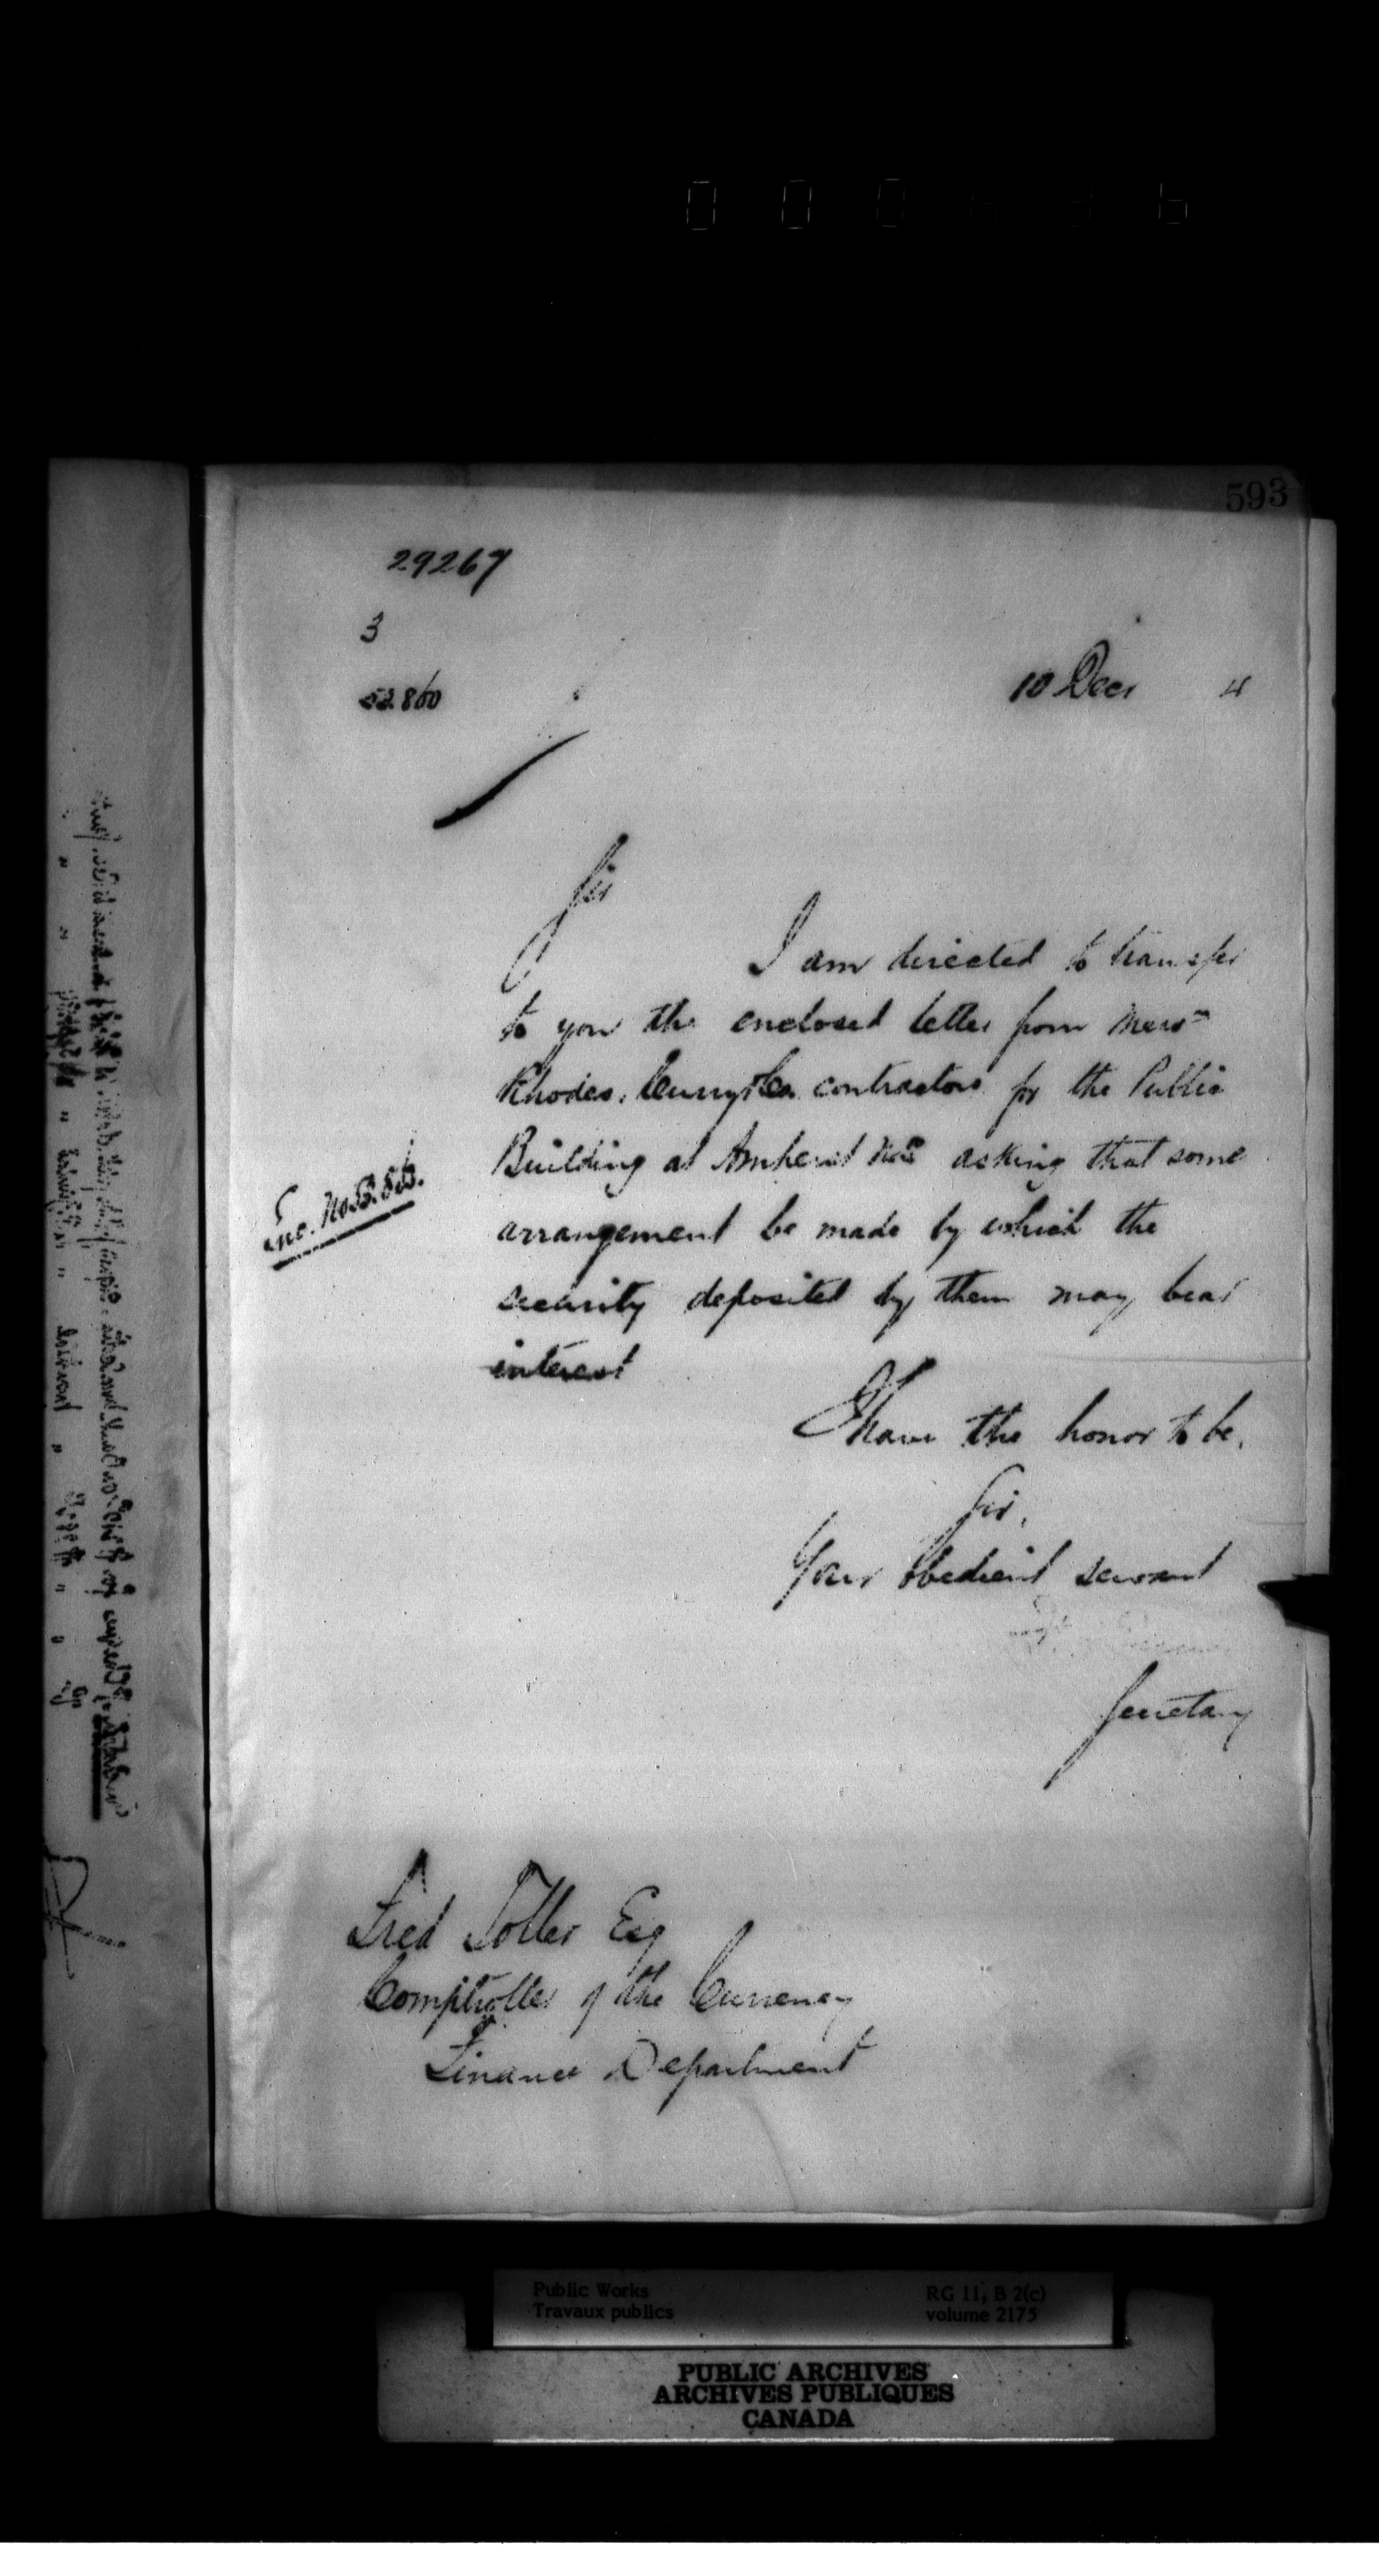 593
29267
3
10 Decr 4
Sir
I am directed to transfer
to you the enclosed letter from Messrs
Rhodes, Curry & Co contractors for the Public
Building at Amherst asking that some
arrangement be made by which the
security deposited by them may bear
interest
Enc. No
I have the honor to be,
Sir,
Your obedient servant
Secretary
Fred Toller Esq
Comptroller of the Currency
Finance Department
Public Works
Travaux publics
RG 11, B 2(c)
volume 2175
PUBLIC ARCHIVES
ARCHIVES PUBLIQUES
CANADA